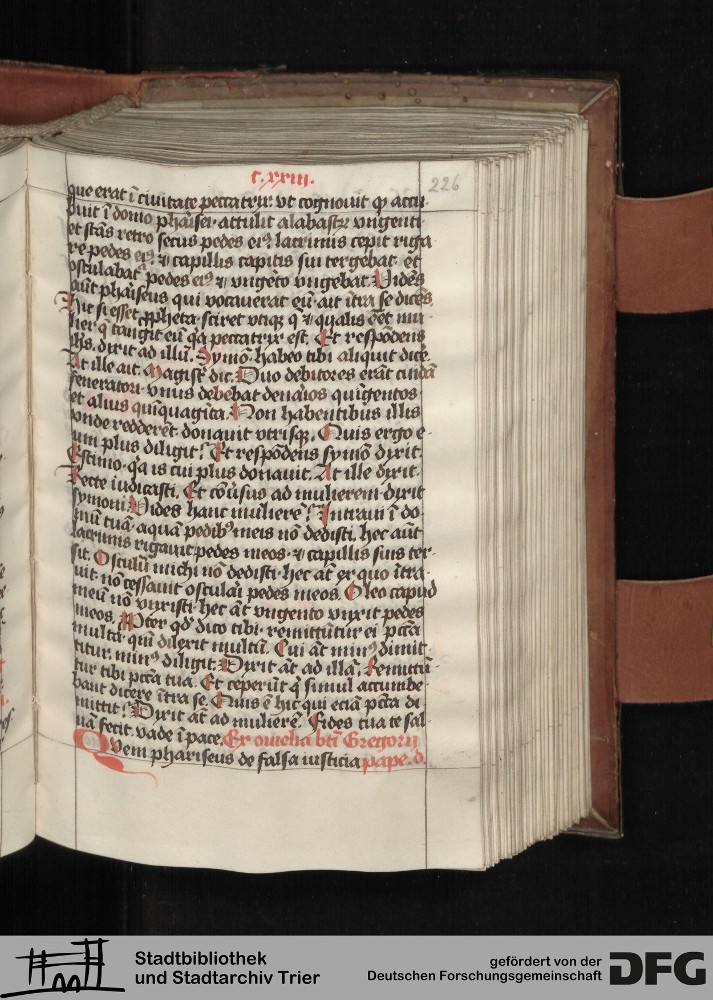 c.xxiii.
226
que erat ī ciuitate peccatrix vt cognouit ꝙ accu
buit ī domo pharisei attulit alabastꝝ vngenti
et stās retro secus pedes eiꝰ lacrimis cepit riga
re pedes eiꝰ ⁊ capillis capitis sui tergebat et
osculabat pedes eiꝰ ⁊ vngēto vngebat. Vidēs
aūt phariseus qui vocauerat eū ait ītra se dicēs
Hic si esset ꝓpheta sciret vtiqꝫ q̄ ⁊ qualis eēt mu
lier q̄ tangit eū qͣa peccatrix est. Et respōdens
ihs dixit ad illū. Symō habeo tibi aliquit dicē
At ille ait. Magist̄ dic. Duo debitores erāt cuidā
feneratori vnus debebat denarios quīgentos
et alius quīquagīta. Non habentibus illis
vnde redderēt donauit vtrisqꝫ. Quis ergo e
um plus diligit? Et respōdens symō dixit
Estimo qͣa is cui plus donauit. At ille dixit
Recte iudicasti. Et cōuersus ad mulierem dixit
symoni. Vides hanc mulierē? Intraui ī do
mū tuā aquā pedibꝰ meis nō dedisti. hec aūt
lacrimis rigauit pedes meos ⁊ capillis suis ter
sit. Osculū michi nō dedisti hec āt ex quo ītra
uit nō cessauit osculari pedes meos. Oleo capud
meū nō vnxisti hec āt vngento vnxit pedes
meos. Pter qd̓ dico tibi remittūtur ei pctā
multa qm̄ dilexit multū. Cui āt minꝰ dimit
titur minꝰ diligit. Dixit āt ad illā. Remittū
tur tibi pctā tua. Et ceperūt q̄ simul accumbe
bant dicere ītra se. Quis ē hic qui eciā pctā di
mittit? Dixit āt ad mulierē. Fides tua te sal
uā fecit vade ī pace. Ex omelia bti Gregorij
Quem phariseus de falsa iusticia pape. d.
Stadtbibliothek
und Stadtarchiv Trier
gefördert von der
Deutschen Forschungsgemeinschaft
DFG